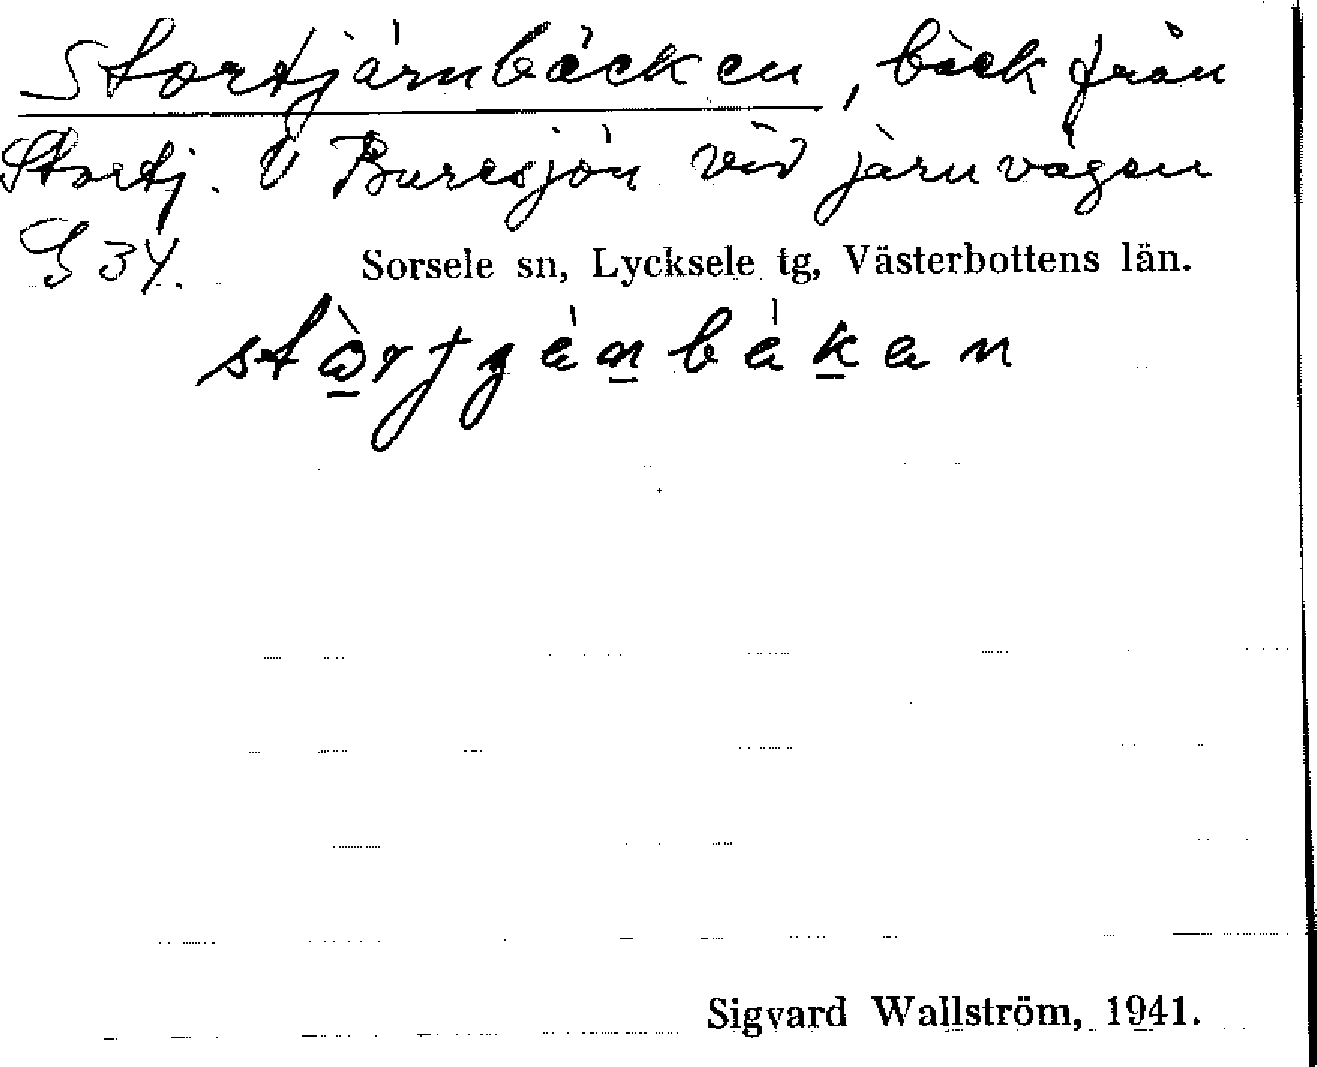 Stortjärnbäcken, bäck från
Stortj. V Buresjön vid järnvägen
G 34. Sorsele sn, Lycksele tg, Västerbottens län.
Sigvard Wallström, 1941.